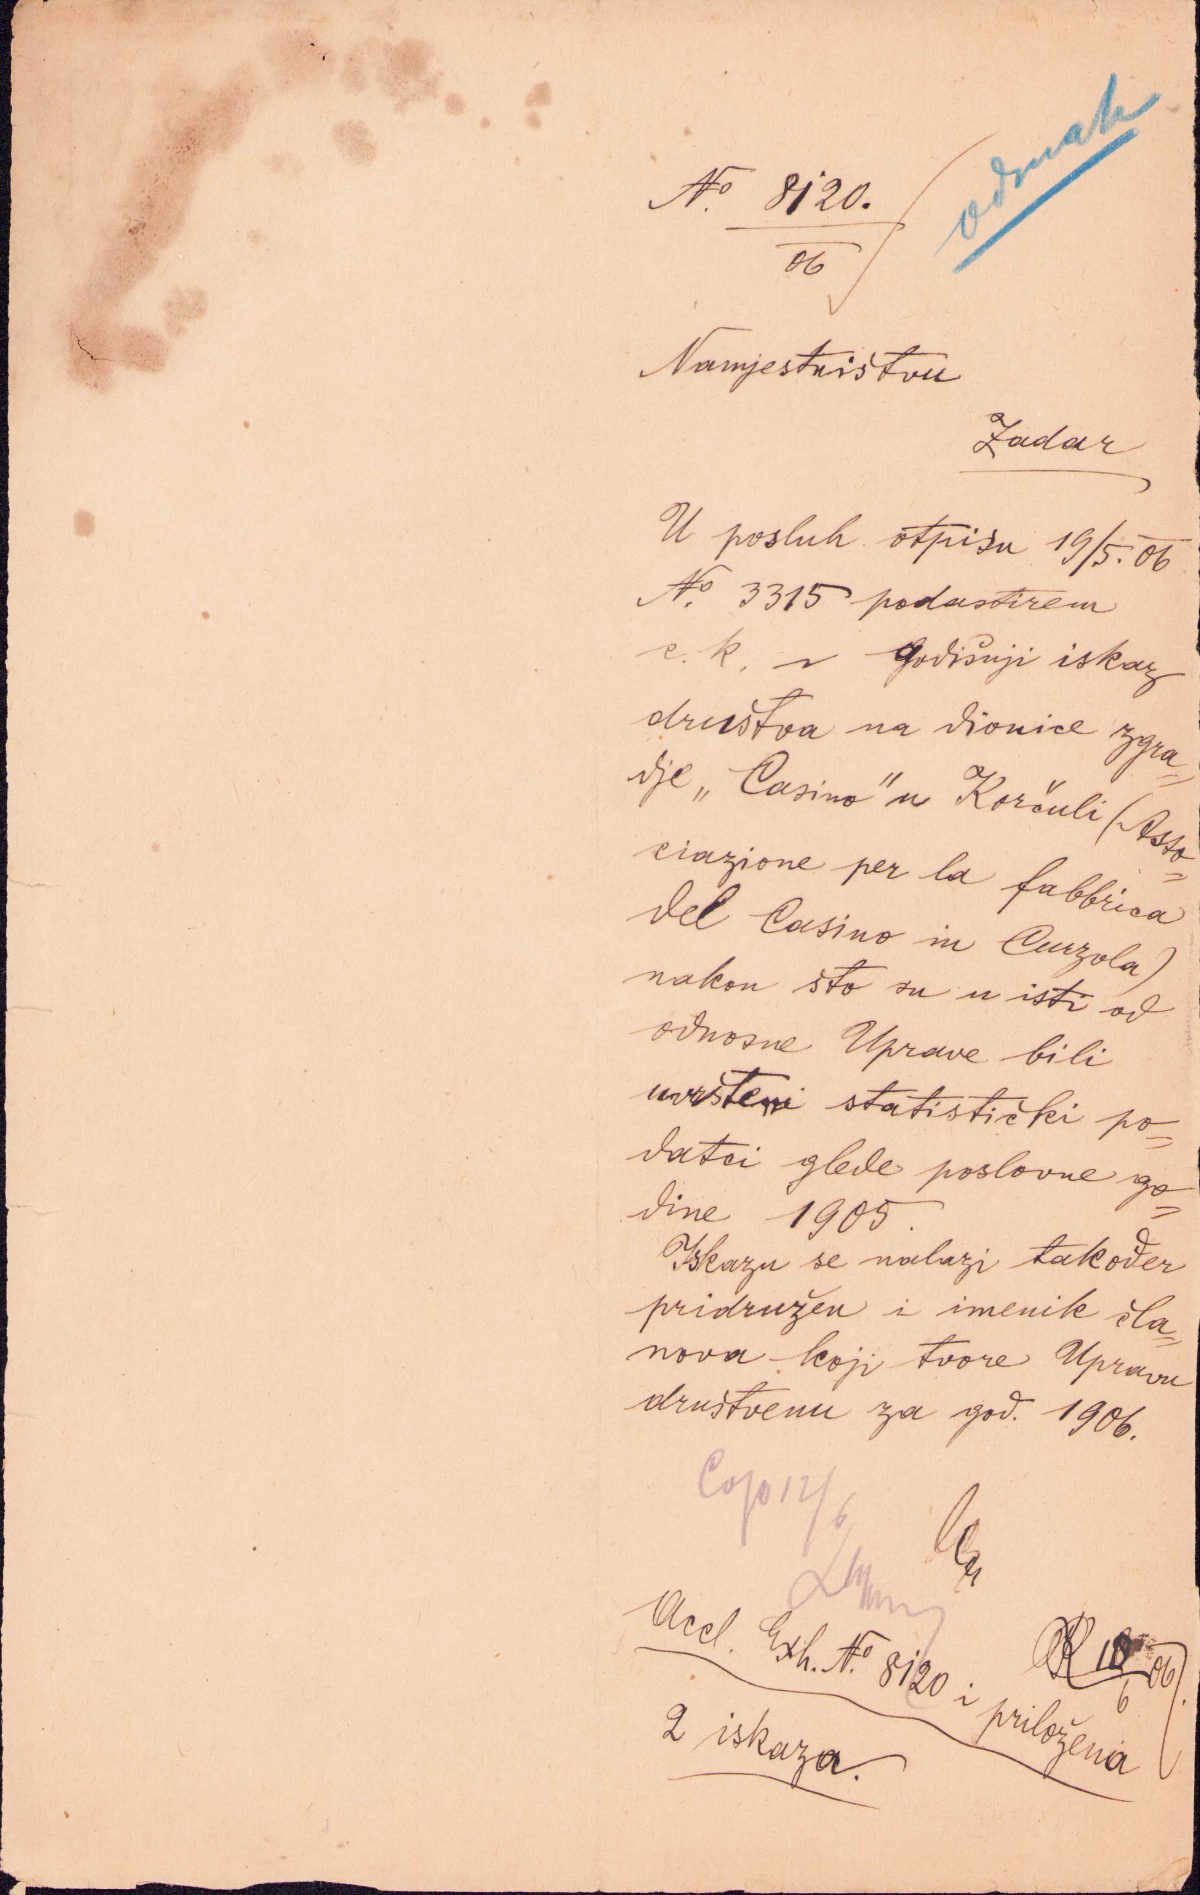 odmah
No. 8120.
06
Namjestništvu
Zadar
U posluh otpisu 19/5. 06
No. 3315 podastirem
c. k. godišnji iskaz
društva na dionice zgra=
dje „Casino" u Korčuli (Asso=
ciazione per la fabbrica
del Casino in Curzola)
nakon što su u isti od
odnosne Uprave bili
uvršteni statistički po=
datci glede poslovne go=
dine 1905.
Iskazu se nalazi također
pridružen i imenik čla=
nova koji tvore Upravu
društvenu za god. 1906.
Cop 12/6
18/6 06
Accl. Exh. No. 8120 i priložena
2 iskaza.